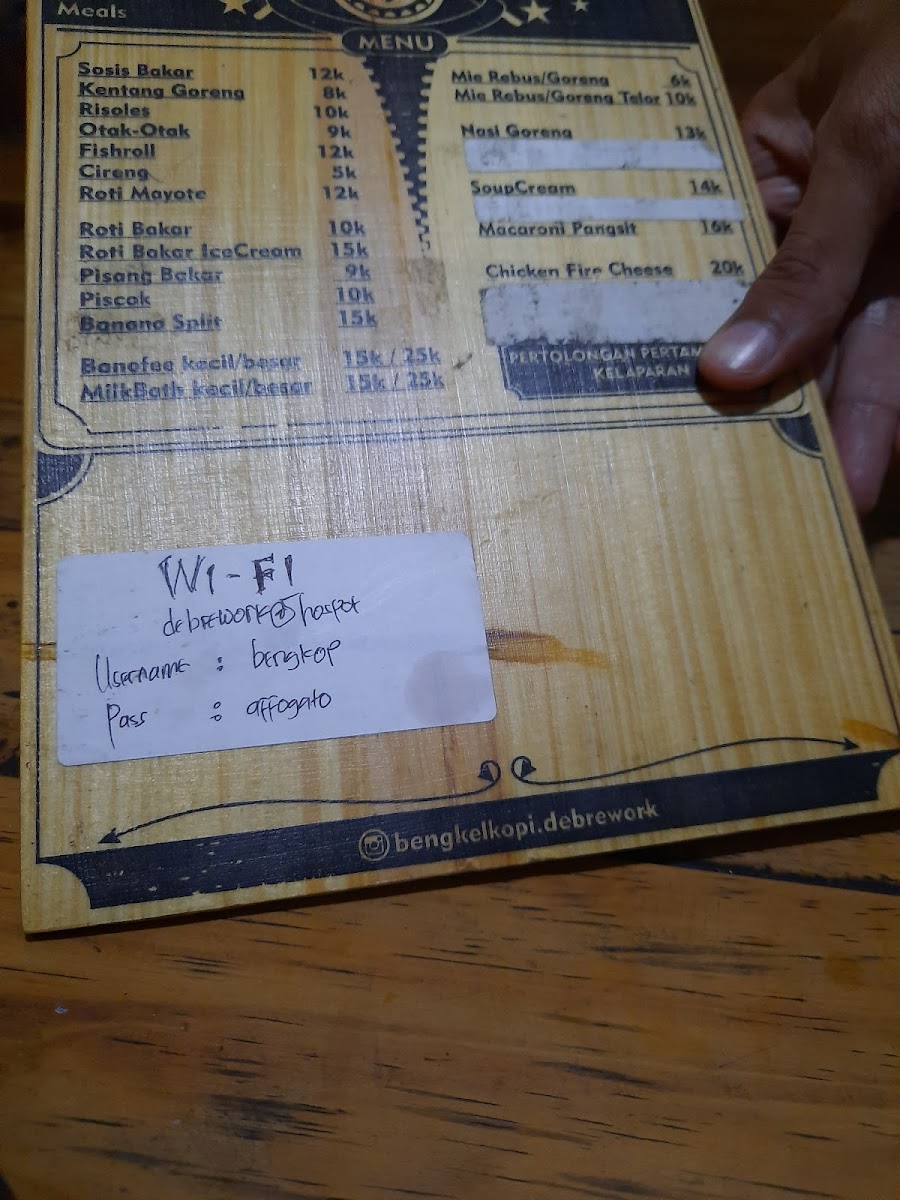 Meals
MENU
Sosis Bakar 12k
Kentang Goreng 8k
Risoles 10k
Otak-Otak 9k
Fishroll 12k
Cireng 5k
Roti Mayote 12k
Roti Bakar 10k
Roti Bakar IceCream 15k
Pisang Bakar 9k
Piscok 10k
Banana Split 15k
Banofee kecil/besar 15k / 25k
MilkBath kecil/besar 15k / 25k
Mie Rebus/Goreng 6k
Mie Rebus/Goreng Telor 10k
Nasi Goreng 13k
SoupCream 14k
Macaroni Pangsit 16k
Chicken Fire Cheese 20k
PERTOLONGAN PERTAM
KELAPARAN
WI-FI
debrework@hospot
Username : bengkop
Pass : affogato
bengkelkopi.debrework